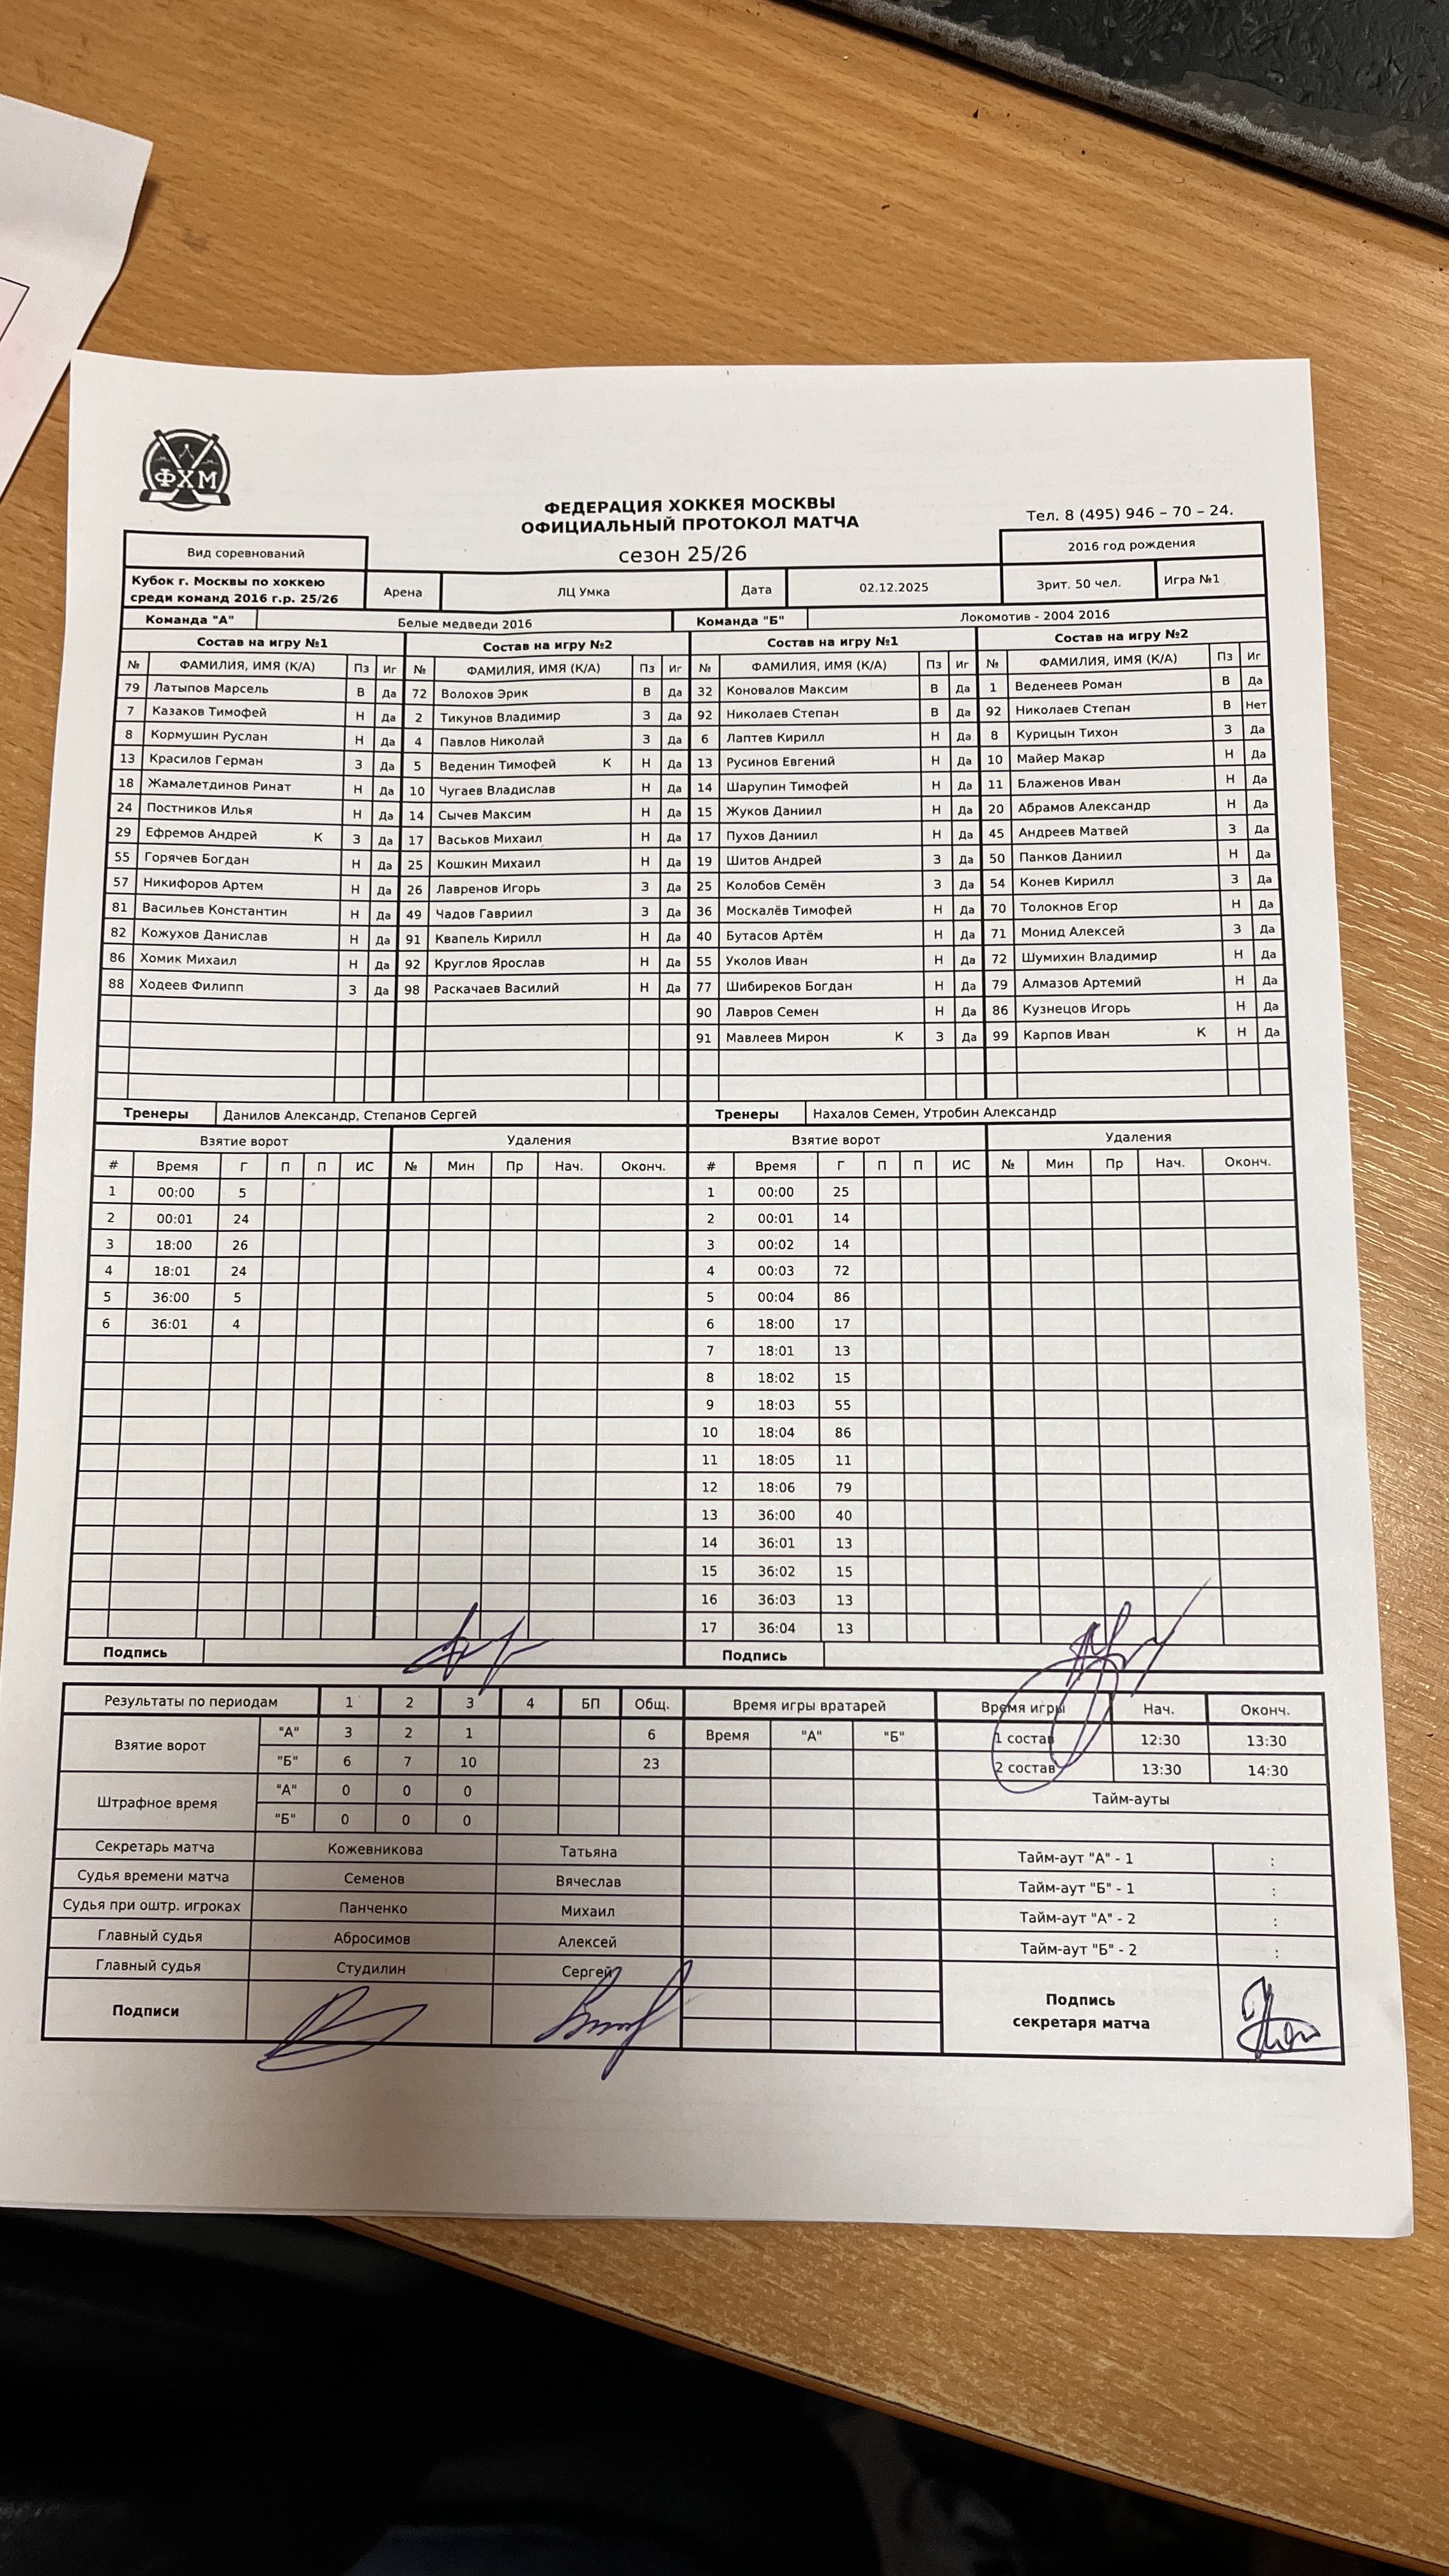 ФХМ
ФЕДЕРАЦИЯ ХОККЕЯ МОСКВЫ
ОФИЦИАЛЬНЫЙ ПРОТОКОЛ МАТЧА
Тел. 8 (495) 946 – 70 – 24.
Вид соревнований сезон 25/26 2016 год рождения
Кубок г. Москвы по хоккею
среди команд 2016 г.р. 25/26 Арена ЛЦ Умка Дата 02.12.2025 Зрит. 50 чел. Игра №1
Команда "А" Белые медведи 2016 Команда "Б" Локомотив - 2004 2016
Состав на игру №1 Состав на игру №2 Состав на игру №1 Состав на игру №2
№ ФАМИЛИЯ, ИМЯ (К/А) Пз Иг № ФАМИЛИЯ, ИМЯ (К/А) Пз Иг № ФАМИЛИЯ, ИМЯ (К/А) Пз Иг № ФАМИЛИЯ, ИМЯ (К/А) Пз Иг
79 Латыпов Марсель В Да 72 Волохов Эрик В Да 32 Коновалов Максим В Да 1 Веденеев Роман В Да
7 Казаков Тимофей Н Да 2 Тикунов Владимир З Да 92 Николаев Степан В Да 92 Николаев Степан В Нет
8 Кормушин Руслан Н Да 4 Павлов Николай З Да 6 Лаптев Кирилл Н Да 8 Курицын Тихон З Да
13 Красилов Герман З Да 5 Веденин Тимофей К Н Да 13 Русинов Евгений Н Да 10 Майер Макар Н Да
18 Жамалетдинов Ринат Н Да 10 Чугаев Владислав Н Да 14 Шарупин Тимофей Н Да 11 Блаженов Иван Н Да
24 Постников Илья Н Да 14 Сычев Максим Н Да 15 Жуков Даниил Н Да 20 Абрамов Александр Н Да
29 Ефремов Андрей К З Да 17 Васьков Михаил Н Да 17 Пухов Даниил Н Да 45 Андреев Матвей З Да
55 Горячев Богдан Н Да 25 Кошкин Михаил Н Да 19 Шитов Андрей З Да 50 Панков Даниил Н Да
57 Никифоров Артем Н Да 26 Лавренов Игорь З Да 25 Колобов Семён З Да 54 Конев Кирилл З Да
81 Васильев Константин Н Да 49 Чадов Гавриил З Да 36 Москалёв Тимофей Н Да 70 Толокнов Егор Н Да
82 Кожухов Данислав Н Да 91 Квапель Кирилл Н Да 40 Бутасов Артём Н Да 71 Монид Алексей З Да
86 Хомик Михаил Н Да 92 Круглов Ярослав Н Да 55 Уколов Иван Н Да 72 Шумихин Владимир Н Да
88 Ходеев Филипп З Да 98 Раскачаев Василий Н Да 77 Шибиреков Богдан Н Да 79 Алмазов Артемий Н Да
90 Лавров Семен Н Да 86 Кузнецов Игорь Н Да
91 Мавлеев Мирон К З Да 99 Карпов Иван К Н Да
Тренеры Данилов Александр, Степанов Сергей Тренеры Нахалов Семен, Утробин Александр
Взятие ворот Удаления Взятие ворот Удаления
# Время Г П П ИС № Мин Пр Нач. Оконч. # Время Г П П ИС № Мин Пр Нач. Оконч.
1 00:00 5 1 00:00 25
2 00:01 24 2 00:01 14
3 18:00 26 3 00:02 14
4 18:01 24 4 00:03 72
5 36:00 5 5 00:04 86
6 36:01 4 6 18:00 17
7 18:01 13
8 18:02 15
9 18:03 55
10 18:04 86
11 18:05 11
12 18:06 79
13 36:00 40
14 36:01 13
15 36:02 15
16 36:03 13
17 36:04 13
Подпись Подпись
Результаты по периодам 1 2 3 4 БП Общ. Время игры вратарей Время игры Нач. Оконч.
Взятие ворот "А" 3 2 1 6 Время "А" "Б" 1 состав 12:30 13:30
"Б" 6 7 10 23 2 состав 13:30 14:30
Штрафное время "А" 0 0 0 Тайм-ауты
"Б" 0 0 0
Секретарь матча Кожевникова Татьяна Тайм-аут "А" - 1 :
Судья времени матча Семенов Вячеслав Тайм-аут "Б" - 1 :
Судья при оштр. игроках Панченко Михаил Тайм-аут "А" - 2 :
Главный судья Абросимов Алексей Тайм-аут "Б" - 2 :
Главный судья Студилин Сергей
Подписи Подпись
секретаря матча